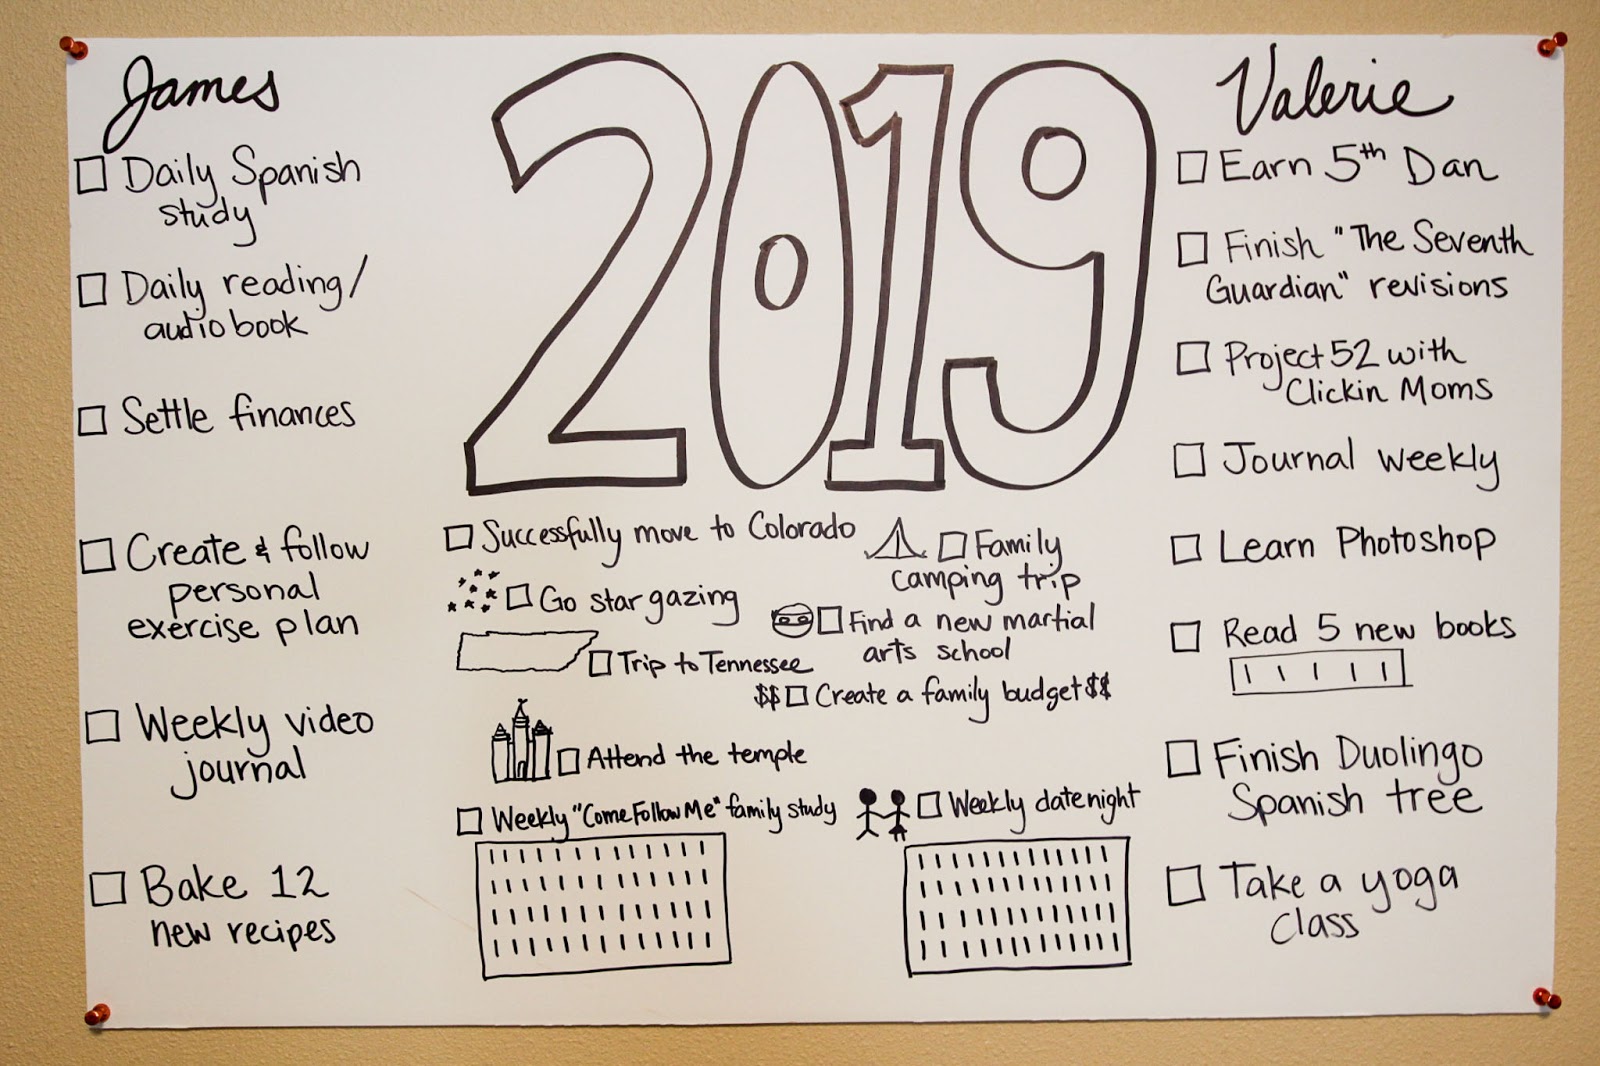 James
Daily Spanish
study
Daily reading/
audiobook
Settle finances
Create & follow
personal
exercise plan
Weekly video
journal
Bake 12
new recipes
2019
Successfully move to Colorado
Family
camping trip
Go star gazing
Find a new martial
arts school
Trip to Tennessee
$$ Create a family budget $$
Attend the temple
Weekly "Come Follow Me" family study
Weekly date night
Valerie
Earn 5th Dan
Finish "The Seventh
Guardian" revisions
Project 52 with
Clickin Moms
Journal weekly
Learn Photoshop
Read 5 new books
Finish Duolingo
Spanish tree
Take a yoga
class